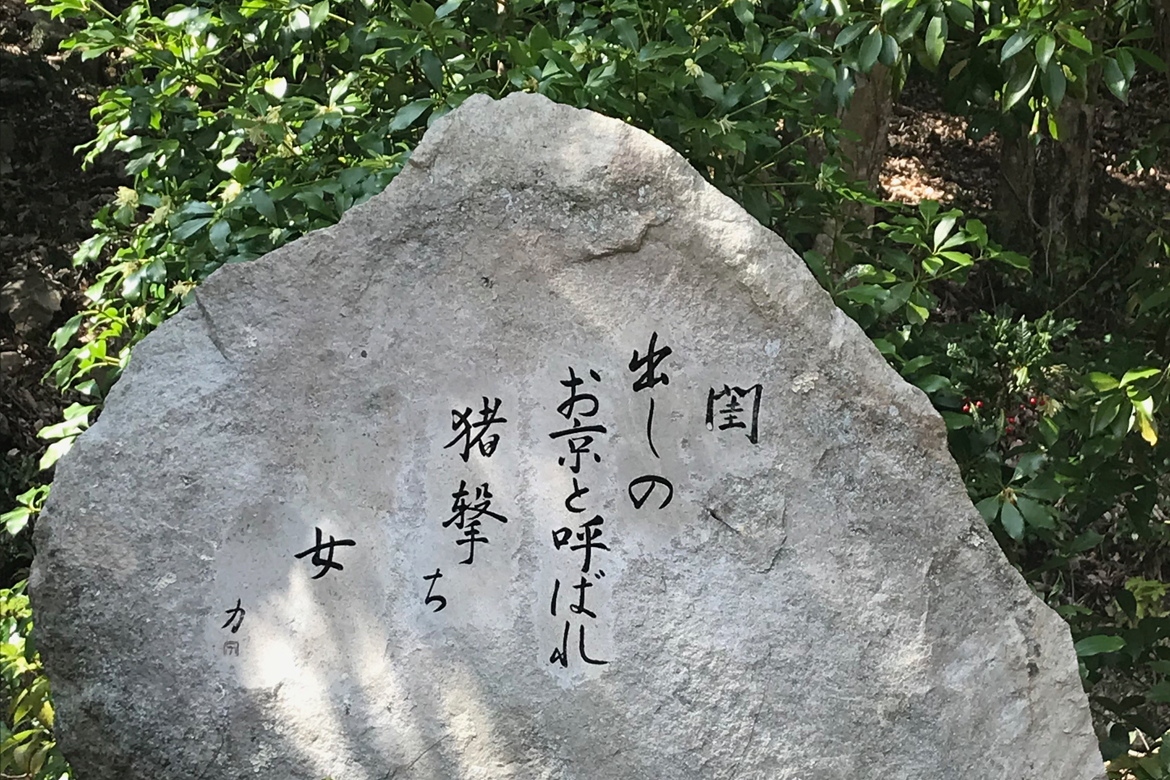 閨
出しの
お京と呼ばれ
猪撃
ち
女
力